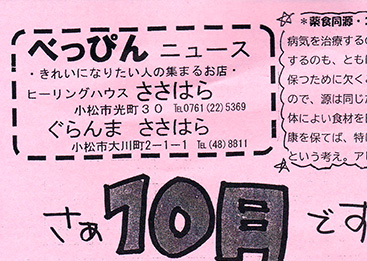 べっぴん ニュース
・きれいになりたい人の集まるお店・
ヒーリングハウス ささはら
小松市光町30 TEL0761(22)5369
ぐらんま ささはら
小松市大川町2-1-1 TEL(48)8811
*薬食同源・
病気を治療する
するのも、とも
保つために欠く
ので、源は同じ
体によい食材を
康を保てば、特
という考え。ア
さぁ10月です